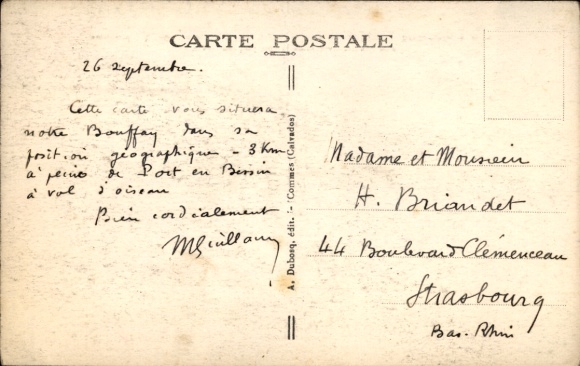 CARTE POSTALE
26 septembre.
Cette carte vous situera
notre Bouffay dans sa
position géographique - 3 Km
à peine de Port en Bessin
à vol d'oiseau
Bien cordialement
A. Dubosq, édit. - Commes (Calvados)
Madame et Monsieur
H. Briandet
44 Boulevard Clémenceau
Strasbourg
Bas-Rhin